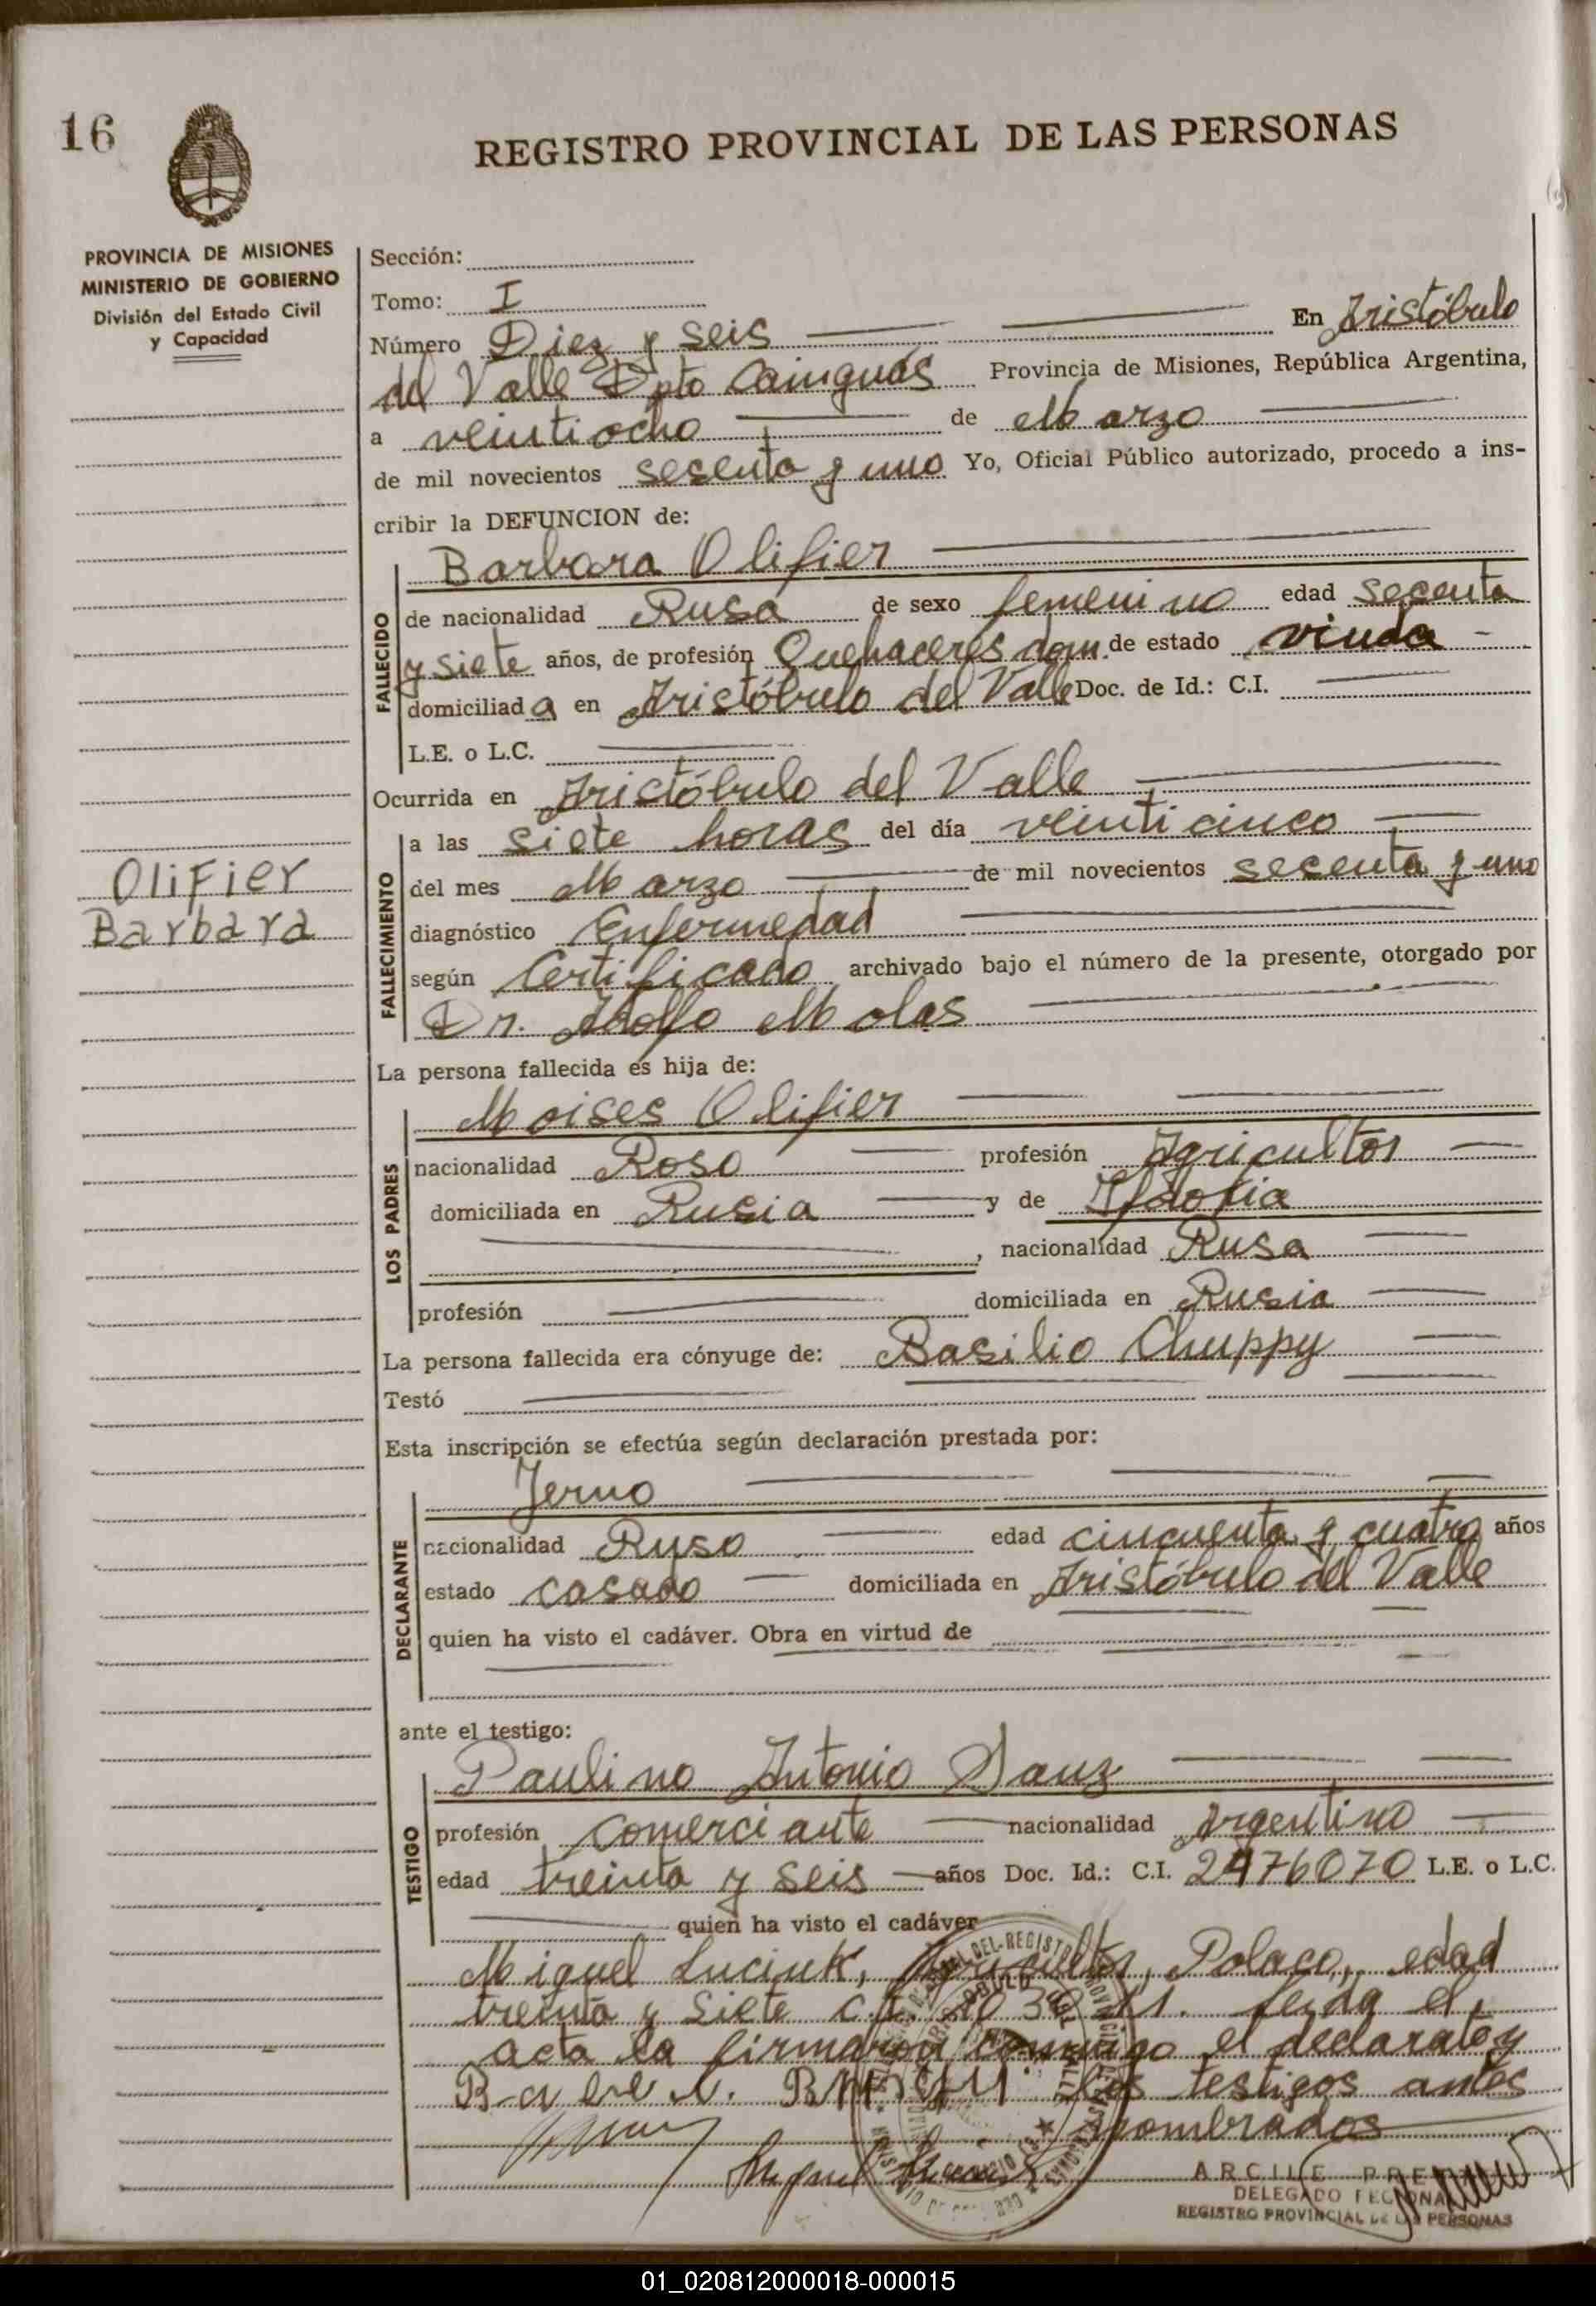 16
REGISTRO PROVINCIAL DE LAS PERSONAS
PROVINCIA DE MISIONES
MINISTERIO DE GOBIERNO
División del Estado Civil
y Capacidad
Sección:
Tomo: I
Número Diez y seis En Aristóbulo
del Valle Dpto Cainguás Provincia de Misiones, República Argentina,
a veintiocho de Marzo
de mil novecientos sesenta y uno Yo, Oficial Público autorizado, procedo a ins-
cribir la DEFUNCION de:
Barbara Olifier
FALLECIDO
de nacionalidad Rusa de sexo femenino edad secenta
y siete años, de profesión Quehaceres dom. de estado viuda
domiciliada en Aristóbulo del Valle Doc. de Id.: C.I.
L.E. o L.C.
Ocurrida en Aristóbulo del Valle
a las siete horas del día veinticinco
Olifier
Barbara
FALLECIMIENTO
del mes Marzo de mil novecientos secenta y uno
diagnóstico Enfermedad
según Certificado archivado bajo el número de la presente, otorgado por
Dr. Adolfo Molas
La persona fallecida es hija de:
Moises Olifier
LOS PADRES
nacionalidad Roso profesión Agricultor
domiciliada en Rusia y de
, nacionalidad Rusa
profesión domiciliada en Rusia
La persona fallecida era cónyuge de: Basilio Chuppy
Testó
Esta inscripción se efectúa según declaración prestada por:
Jerno
DECLARANTE
nacionalidad Ruso edad cincuenta y cuatro años
estado casado domiciliada en Aristóbulo del Valle
quien ha visto el cadáver. Obra en virtud de
ante el testigo:
Paulino Antonio Sanz
TESTIGO
profesión comerciante nacionalidad Argentino
edad treinta y seis años Doc. Id.: C.I. 2476070 L.E. o L.C.
quien ha visto el cadáver
Miguel Luciuk, Agricultor, Polaco, edad
treinta y siete C.I. leida el
acta la firmaron conmigo el declarate y
los testigos antes
nombrados
ARCILE
DELEGADO REGIONAL
REGISTRO PROVINCIAL DE LAS PERSONAS
01_020812000018-000015